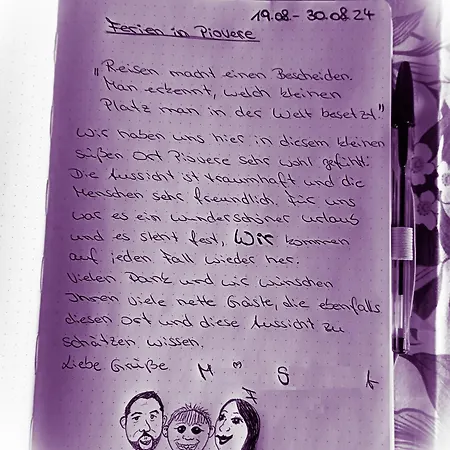 19.08.- 30.08.24
Ferien in Piovere
"Reisen macht einen Bescheiden.
Man erkennt, welch kleinen
Platz man in der Welt besetzt."
Wir haben uns hier in diesem kleinen
süßen Ort Piovere sehr wohl gefühlt.
Die Aussicht ist traumhaft und die
Menschen sehr freundlich. Für uns
war es ein wunderschöner Urlaub
und es steht fest, Wir kommen
auf jeden Fall wieder her.
Vielen Dank und wir wünschen
Ihnen viele nette Gäste, die ebenfalls
diesen Ort und diese Aussicht zu
schätzen wissen.
Liebe Grüße M S